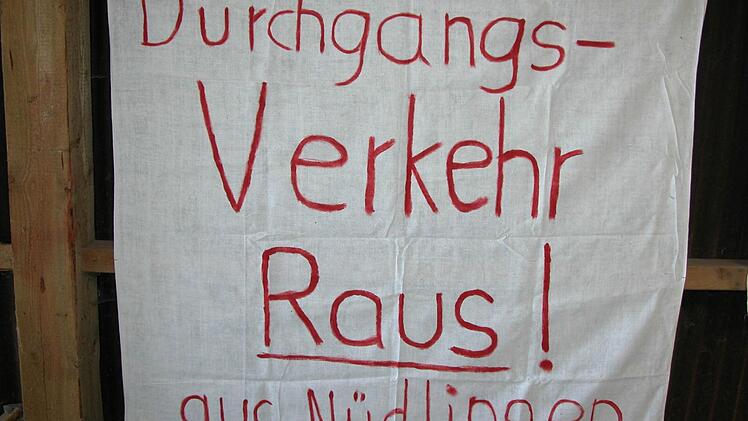 Durchgangs-
Verkehr
Raus!
aus Nüdlingen